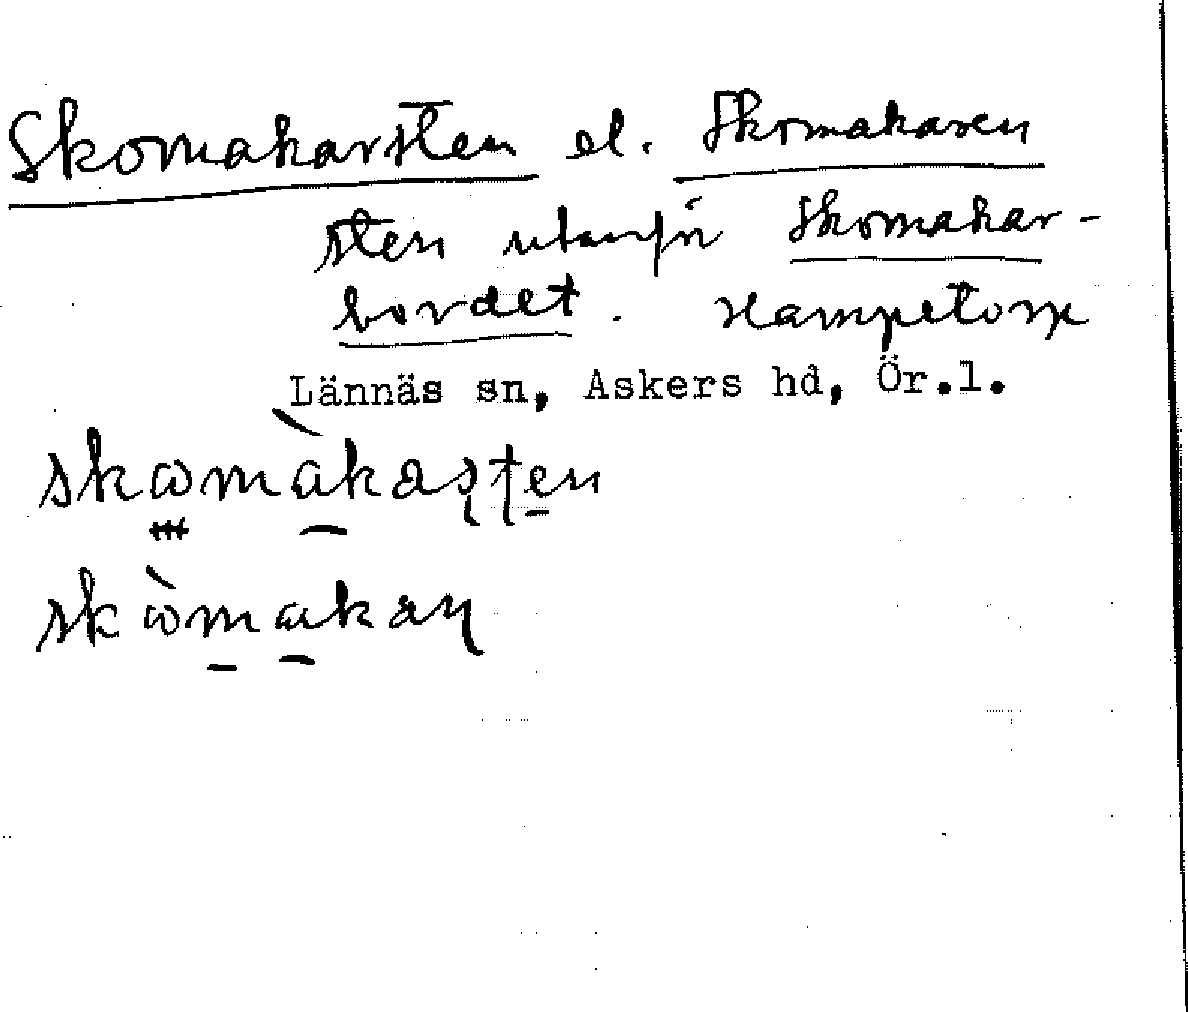 Skomakarsten el. Skomakaren
sten utanför Skomakar-
bordet. Hampetorp
Lännäs sn, Askers hd, Ör.l.
skɷmàkaʂʈen
skɷ̀makaɳ